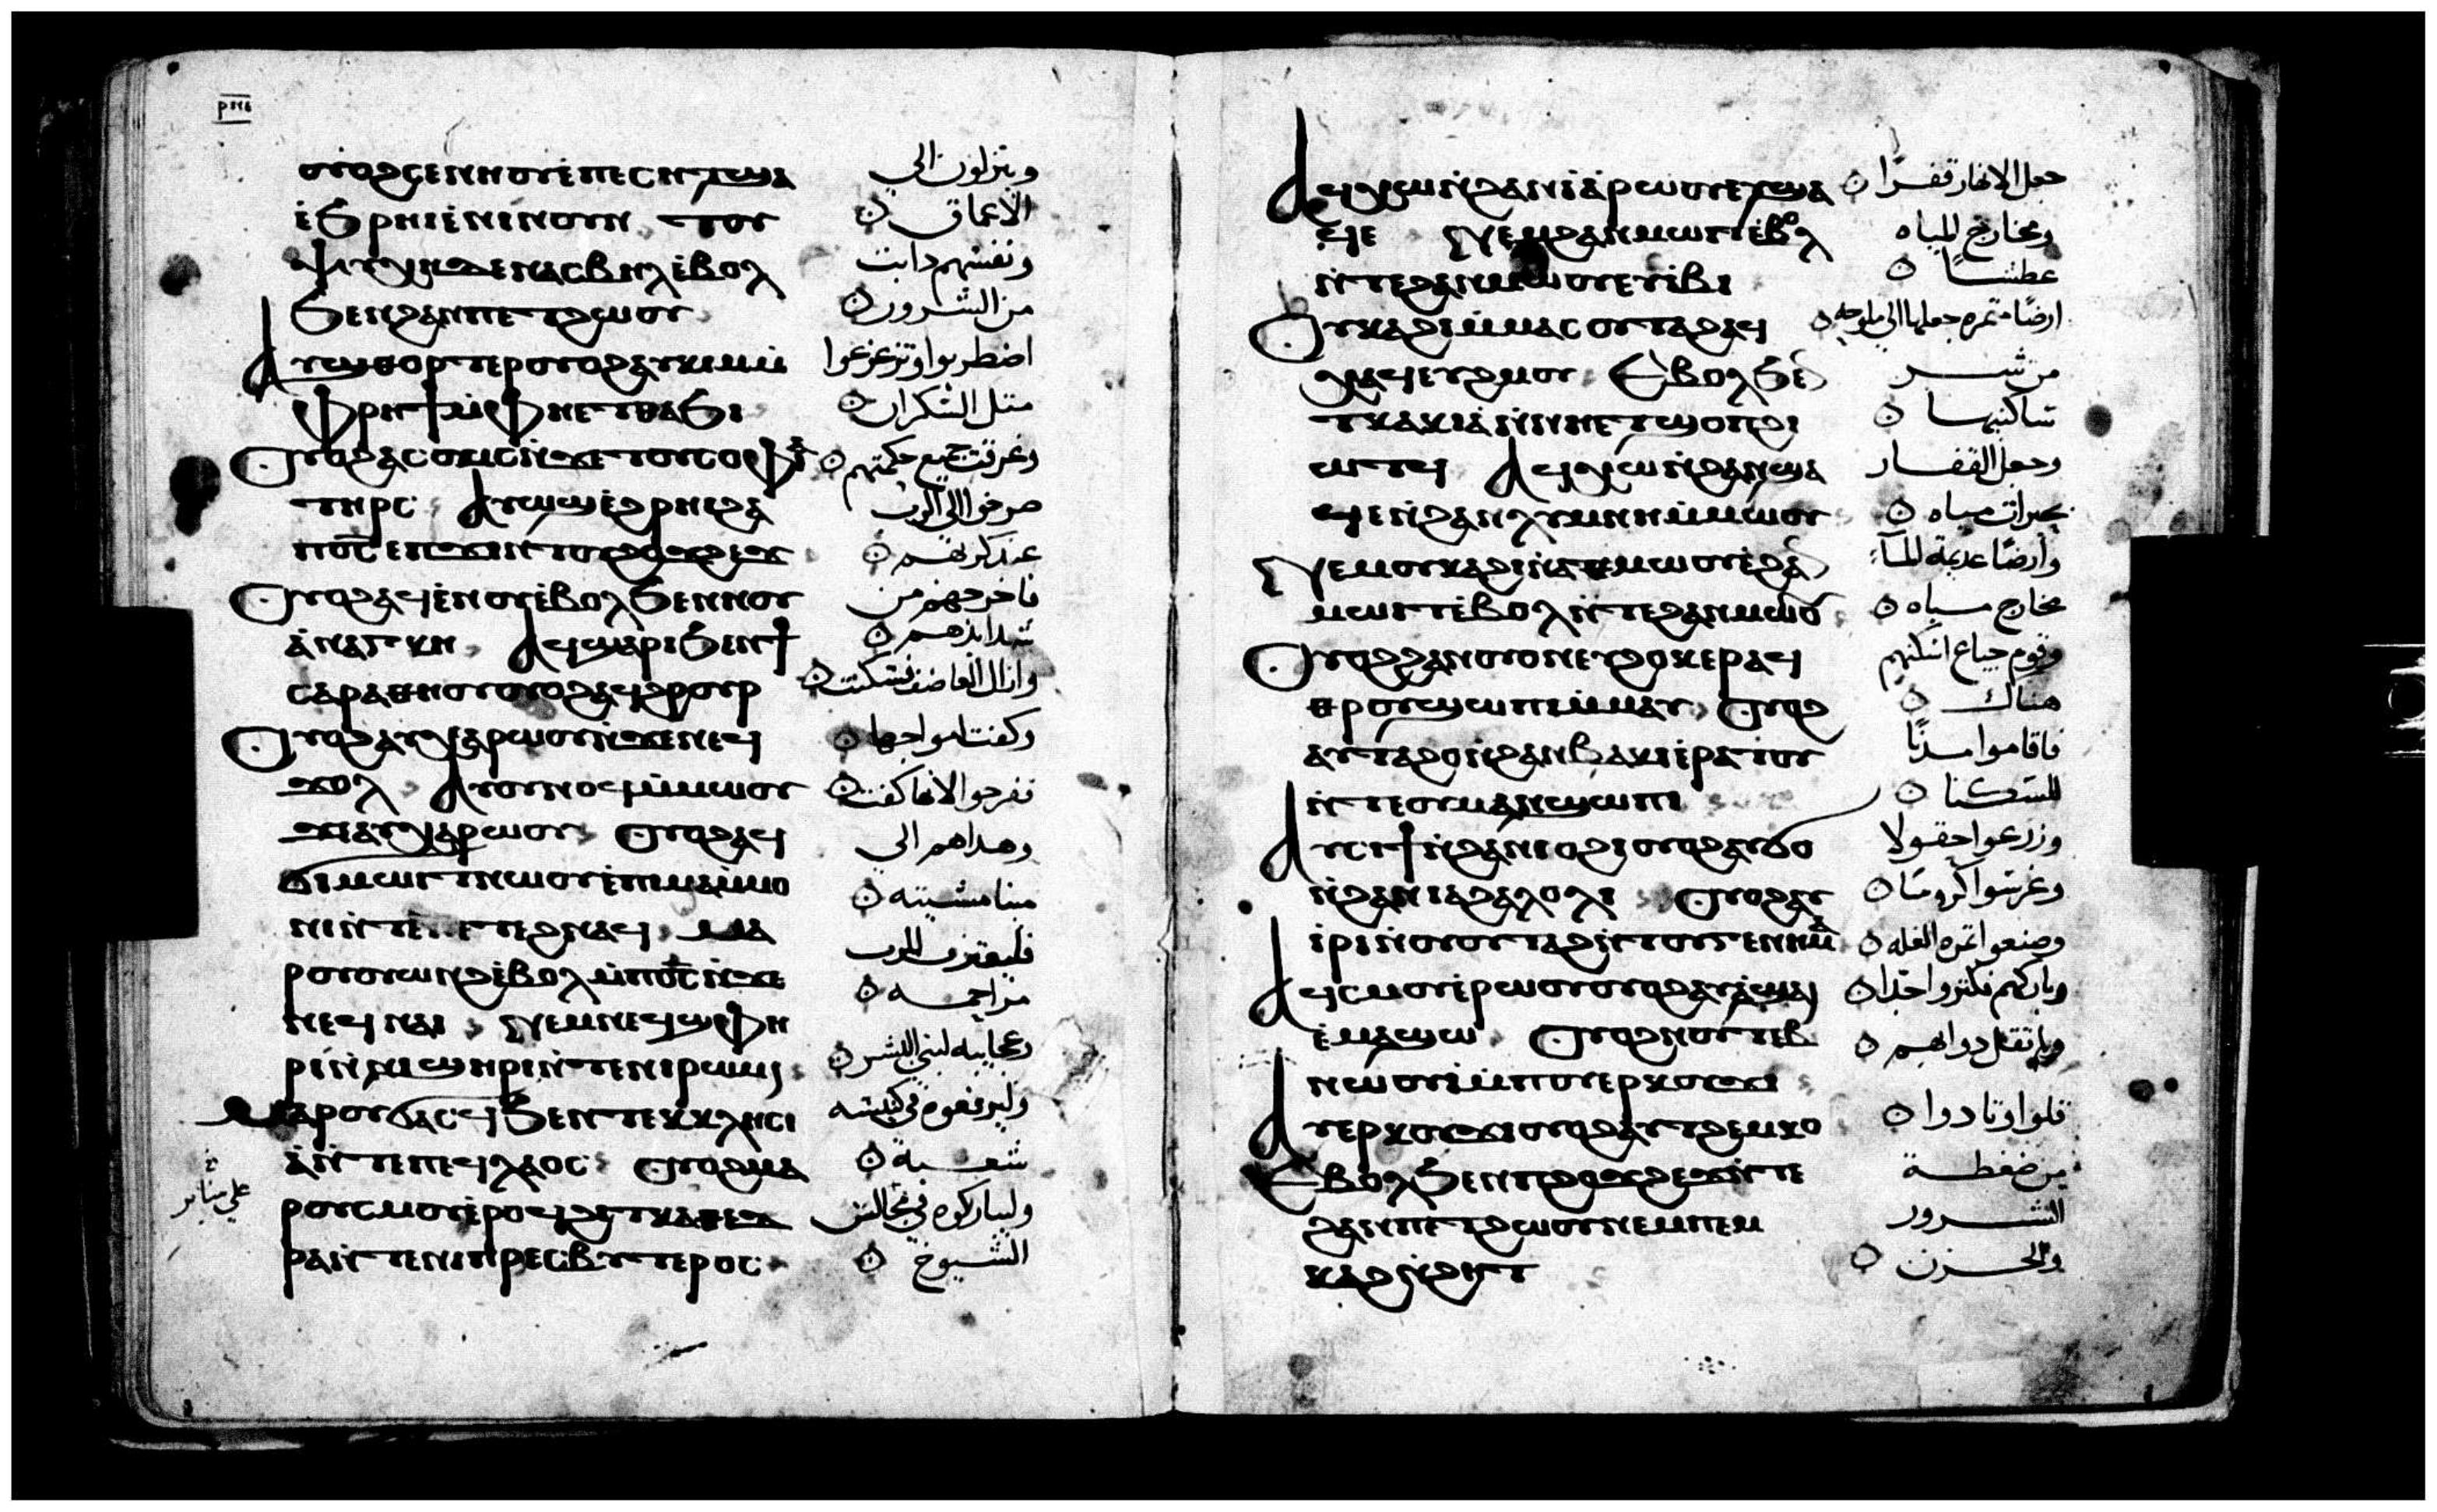 ⲟⲩⲟϩⲥⲉⲛⲛⲟⲩⲉ̀ⲡⲉⲥⲏⲧϣⲁ
ⲉ̀ϧⲣⲏⲓⲉ̀ⲛⲓⲛⲟⲩⲛ ⲧⲟⲩ
ⲯⲩⲭⲏⲇⲉⲛⲁⲥⲃⲏⲗⲉ̀ⲃⲟⲗ
ϧⲉⲛϩⲁⲛⲡⲉⲧϩⲱⲟⲩ
ⲁⲩϣⲑⲟⲣⲧⲉⲣⲟⲩⲟϩⲁⲩⲕⲓⲙⲙ̀
ⲫⲣⲏϯⲙ̀ⲫⲏⲉⲧⲑⲁϧⲓ
ⲟⲩⲟϩⲁⲥⲱⲙⲥⲛ̀ϫⲉⲧⲟⲩⲥⲟⲫⲓⲁ
ⲧⲏⲣⲥ ⲁⲩⲱϣⲉ̀ϩⲣⲏⲓϩⲁ
ⲡϭⲥ ⲉⲡϫⲓⲛⲧⲟⲩϩⲟϫϩⲉϫ
ⲟⲩⲟϩⲁϥⲉⲛⲟⲩⲉ̀ⲃⲟⲗϧⲉⲛⲛⲟⲩ
ⲁ̀ⲛⲁⲅⲕⲏ ⲁϥϣⲁⲣⲓϧⲉⲛϯ
ⲥⲁⲣⲁⲑⲏⲟⲩⲟⲩⲟϩⲁϥϩⲣⲟⲩⲣ
ⲟⲩⲟϩⲁⲩⲭⲁⲣⲱⲟⲩⲛ̀ϫⲉⲛⲉϥ
ϫⲟⲗ ⲁⲩⲟⲩⲛⲟϥⲙ̀ⲙⲱⲟⲩ
ϫⲉⲁⲩⲭⲁⲣⲱⲟⲩ ⲟⲩⲟϩⲁϥ
ϭⲓⲙⲱⲓⲧⲛⲱⲟⲩⲉ̀ⲡⲓⲙⲁⲙ̀ⲙⲟ
ⲛⲓⲛ̀ⲧⲉⲡⲉⲧⲉϩⲛⲁϥ ⲙⲁ
ⲣⲟⲩⲟⲩⲱⲛϩⲉ̀ⲃⲟⲗⲙ̀ⲡϭⲥⲛ̀ϫⲉ
ⲛⲉϥⲛⲁⲓ ⲛⲉⲙⲛⲉϥϣⲫⲏ
ⲣⲓⲛ̀ⲛⲓϣⲏⲣⲓⲛ̀ⲧⲉⲛⲓⲣⲱⲙⲓ
ⲙⲁⲣⲟⲩϭⲁⲥϥϧⲉⲛⲧⲉⲕⲕⲗⲏⲥⲓ
ⲁ̀ⲛ̀ⲧⲉⲡⲉϥⲗⲁⲟⲥ ⲟⲩⲟϩⲙⲁ
ⲣⲟⲩⲥⲙⲟⲩⲉ̀ⲣⲟϥϩⲓⲧⲕⲁⲑⲉⲇ
ⲣⲁⲛ̀ⲧⲉⲛⲓⲡⲣⲉⲥⲃⲩⲧⲉⲣⲟⲥ
وينزلون الي
الاعماق
ونفسهم دابت
من الشرور
اضطربوا وتزعزعوا
مثل السكران
وغرقت جميع حكمتهم
صرخوا الي الرب
عند كربهم
فاخرجهم من
شدايدهم
وكفت امواجها
ففرحوا لانها كفت
وهداهم الي
مينا مشيته
فليعترف للرب
مراحمه
وعجايبه لبني البشر
وليرفعوه في كنيسة
شعبه
وليباركوه في مجالس
الشيوخ
علي منابر
ⲁϥⲭⲱⲛ̀ϩⲁⲛⲓⲁ̀ⲣⲱⲟⲩⲉⲩϣⲁ
ϥⲉ ⲛⲉⲙϩⲁⲛⲙⲱⲓⲧⲉ̀ⲃⲟⲗ
ⲛ̀ⲧⲉϩⲁⲛⲙⲱⲟⲩⲉⲩⲓⲃⲓ
ⲟⲩⲕⲁϩⲓⲙ̀ⲙⲁⲥⲟⲩⲧⲁϩⲁϥ
ⲭⲁϥⲉⲩϩⲙⲟⲩ ⲉⲃⲟⲗϧⲉⲛ
ⲧⲕⲁⲕⲓⲁ̀ⲛ̀ⲛⲏⲉⲧϣⲟⲡϩⲓ
ⲱⲧϥ ⲁϥⲭⲱⲛ̀ϩⲁⲛϣⲁ
ϥⲉⲛ̀ϩⲁⲛⲗⲩⲙⲛⲏⲙ̀ⲙⲱⲟⲩ
ⲛⲉⲙⲟⲩⲕⲁϩⲓⲛ̀ⲁⲑⲙⲱⲟⲩⲉ̀ϩⲁⲛ
ⲙⲱⲓⲧⲉ̀ⲃⲟⲗⲛ̀ⲧⲉϩⲁⲛⲙⲱⲟⲩ
ⲟⲩⲟϩϩⲁⲛⲟⲩⲟⲛⲉⲩϩⲟⲕⲉⲣⲁϥ
ⲑⲣⲟⲩϣⲱⲡⲓⲙ̀ⲙⲁⲩ ⲟⲩⲟϩ
ⲁⲩⲧⲁϩⲟⲛ̀ϩⲁⲛⲃⲁⲕⲓⲉ̀ⲣⲁⲧⲟⲩ
ⲛ̀ⲧⲉⲟⲩⲙⲁⲛ̀ϣⲱⲡⲓ
ⲁⲩⲥⲓϯⲛ̀ϩⲁⲛⲓⲟϩⲓⲟⲩⲟϩⲁⲩϭⲟ
ⲛ̀ϩⲁⲛⲓⲁϩⲁⲗⲟⲗⲓ ⲟⲩⲟϩⲁⲩ
ⲓ̀ⲣⲓⲛ̀ⲟⲩⲟⲩⲧⲁϩⲛ̀ⲧⲟⲩⲅⲉⲛⲛⲏⲙⲁ
ⲁϥⲥⲙⲟⲩⲉ̀ⲣⲱⲟⲩⲟⲩⲟϩⲁⲩⲁ̀ϣⲁⲓ
ⲉ̀ⲙⲁϣⲱ ⲟⲩⲟϩⲛⲟⲩⲧⲉⲃ
ⲛⲱⲟⲩⲓ̀ⲙ̀ⲡⲟⲩⲉⲣⲕⲟⲩϫⲓ
ⲁⲩⲉⲣⲕⲟⲩϫⲓⲟⲩⲟϩⲁⲩⲧϩⲉⲙⲕⲟ
ⲉⲃⲟⲗϧⲉⲛⲡϩⲟϫϩⲉϫⲛ̀ⲧⲉ
ϩⲁⲛⲡⲉⲧϩⲱⲟⲩⲛⲉⲙⲡⲉⲙ
ⲕⲁϩⲛ̀ϩⲏⲧ
جعل الانهار قفرًا
ومخارج المياه
عطشًا
ارضًا مثمره جعلها الي ملوحه
من شر
ساكنيها
وجعل القفار
بحيرات مياه
وأرضًا عديمة المآء
مخارج مياه
وقوم جياع اسكنهم
هناك
فاقاموا مدنًا
للسكنا
وزرعوا حقولا
وغرسوا كرومًا
وصنعوا ثمره الغله
وباركهم فكثروا جدًا
قلوا وتادوا
من ضغطة
الشرور
والحزن